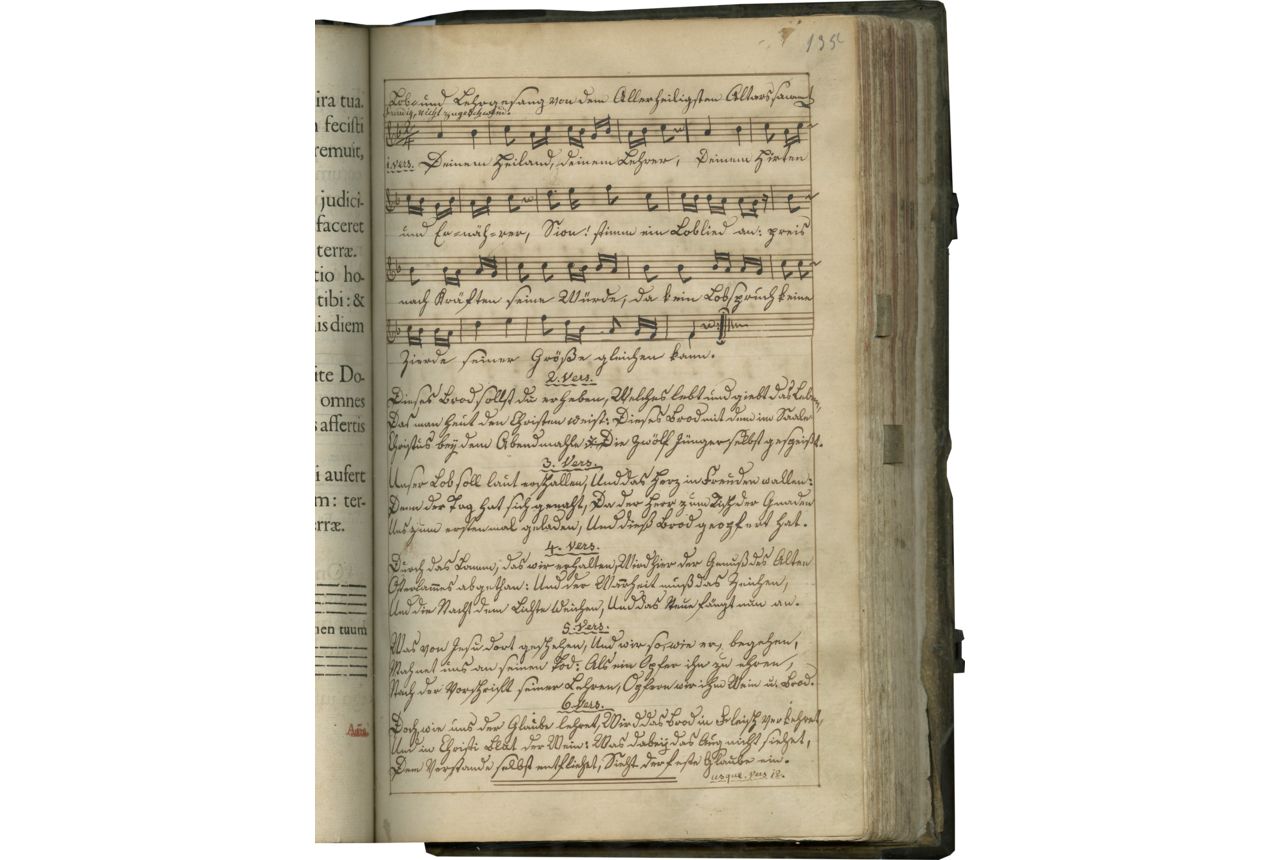 ira tua.
fecisti
remuit,
judici-
faceret
terræ.
tio ho-
tibi: &
is diem
ite Do-
omnes
s affertis
i aufert
m: ter-
erræ.
nen tuum
Aña.
135
Lob- und Lehrgesang von dem Allerheiligsten Altarssacament
1. Vers. Deinem Heiland, deinem Lehrer, Deinem Hirten
und Er-näh-rer, Sion! stimm ein Loblied an: preis
nach Kräften seine Würde, da kein Lobspruch keine
Zierde seiner Größe gleichen kann.
2. Vers.
Dieses Brod sollst du erheben, Welches lebt und giebt das Leben,
Das man heut den Christen weist: Dieses Brod mit dem im Saale
Christus bey dem Abendmahle Die zwölf Jünger selbst gespeißt.
3. Vers.
Unser Lob soll laut erschallen, Und das Herz in Freuden wallen:
Denn der Tag hat sich genaht, Da der Herr zum Tisch der Gnaden
Uns zum erstenmal geladen, Und dieß Brod geopfert hat.
4. Vers.
Durch das Lamm, das wir erhalten, Wird hier der Genuß des Alten
Osterlam̅es abgethan: Und der Warheit muß das Zeichen,
Und die Nacht dem Lichte weichen, Und das Neue fängt nun an.
5. Vers.
Was von Jesu dort geschehen, Und wir so, wie er, begehen,
Mahnet uns an seinen Tod: Als ein Opfer ihn zu ehren,
Nach der Vorschrift seiner Lehren, Opfern wir ihm Wein u. Brod.
6. Vers.
Doch wie uns der Glaube lehret, Wird das Brod in Fleisch verkehret,
Und in Christi Blut der Wein: Was dabey das Aug nicht siehet,
Dem Verstande selbst entfliehet, Sieht der feste Glaube ein.
usque. Vers 12.